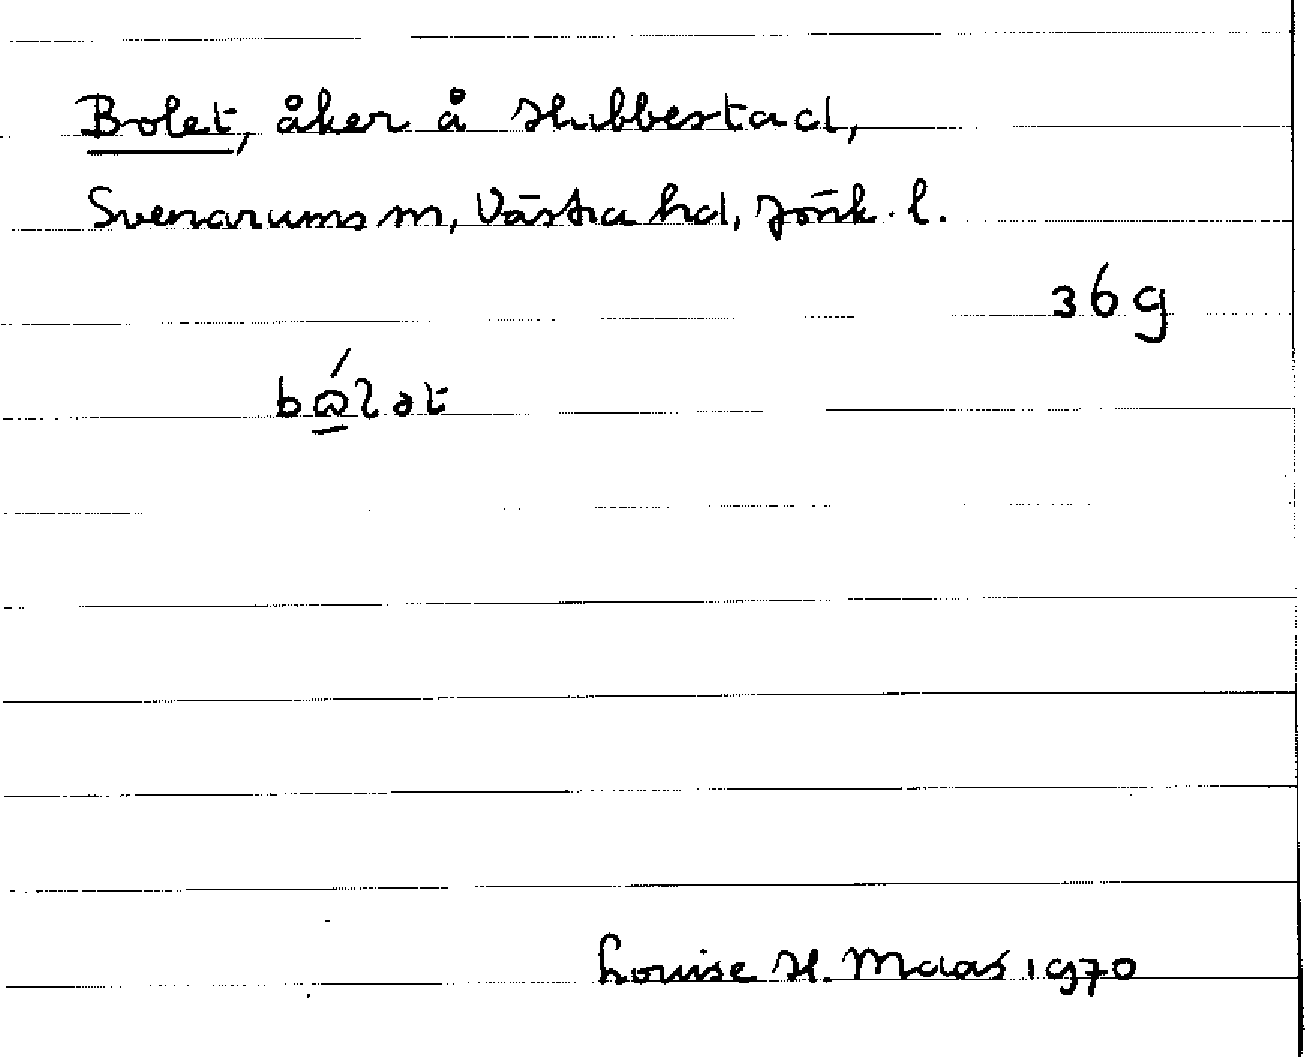 Bolet, åker å Hubbestad,
Svenarums sn, Västra hd, Jönk. l.
36g
Louise H. Maas 1970